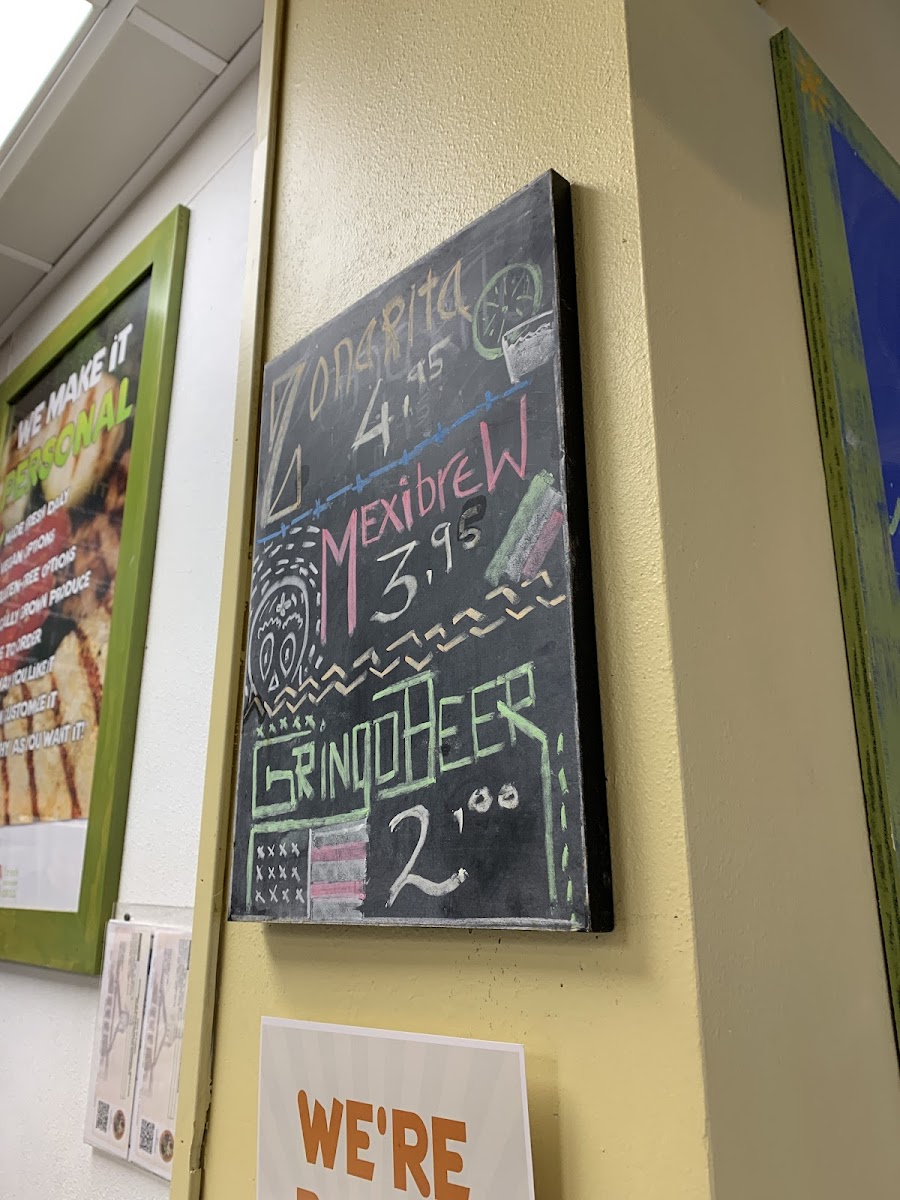 WE MAKE iT
PERSONAL
MADE FRESH DAILY
VEGAN OPTIONS
GLUTEN-FREE OPTIONS
LOCALLY GROWN PRODUCE
TO ORDER
WAY YOU LIKE IT
CUSTOMIZE IT
AS YOU WANT IT!
ZonaRita
4,95
MexibreW
3,95
GRiNgO BEER
2,00
WE'RE